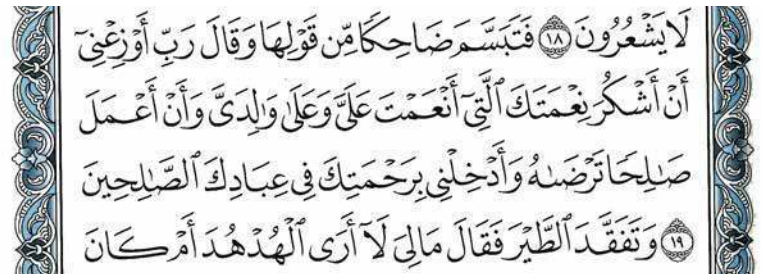 لَا يَشْعُرُونَ ١٨ فَتَبَسَّمَ ضَاحِكًا مِّن قَوْلِهَا وَقَالَ رَبِّ أَوْزِعْنِىٓ
أَنْ أَشْكُرَ نِعْمَتَكَ ٱلَّتِىٓ أَنْعَمْتَ عَلَىَّ وَعَلَىٰ وَٰلِدَىَّ وَأَنْ أَعْمَلَ
صَٰلِحًا تَرْضَىٰهُ وَأَدْخِلْنِى بِرَحْمَتِكَ فِى عِبَادِكَ ٱلصَّٰلِحِينَ
١٩ وَتَفَقَّدَ ٱلطَّيْرَ فَقَالَ مَالِىَ لَآ أَرَى ٱلْهُدْهُدَ أَمْ كَانَ